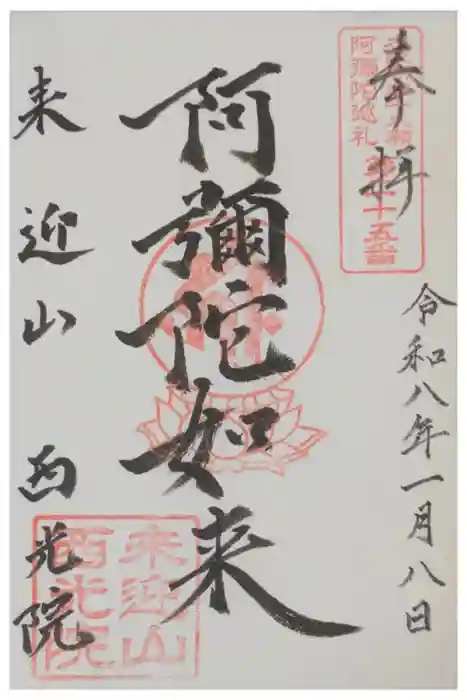 奉拝
阿彌陀巡礼
十五番
令和八年一月八日
阿彌陀如来
来迎山
西光院
来迎山
西光院